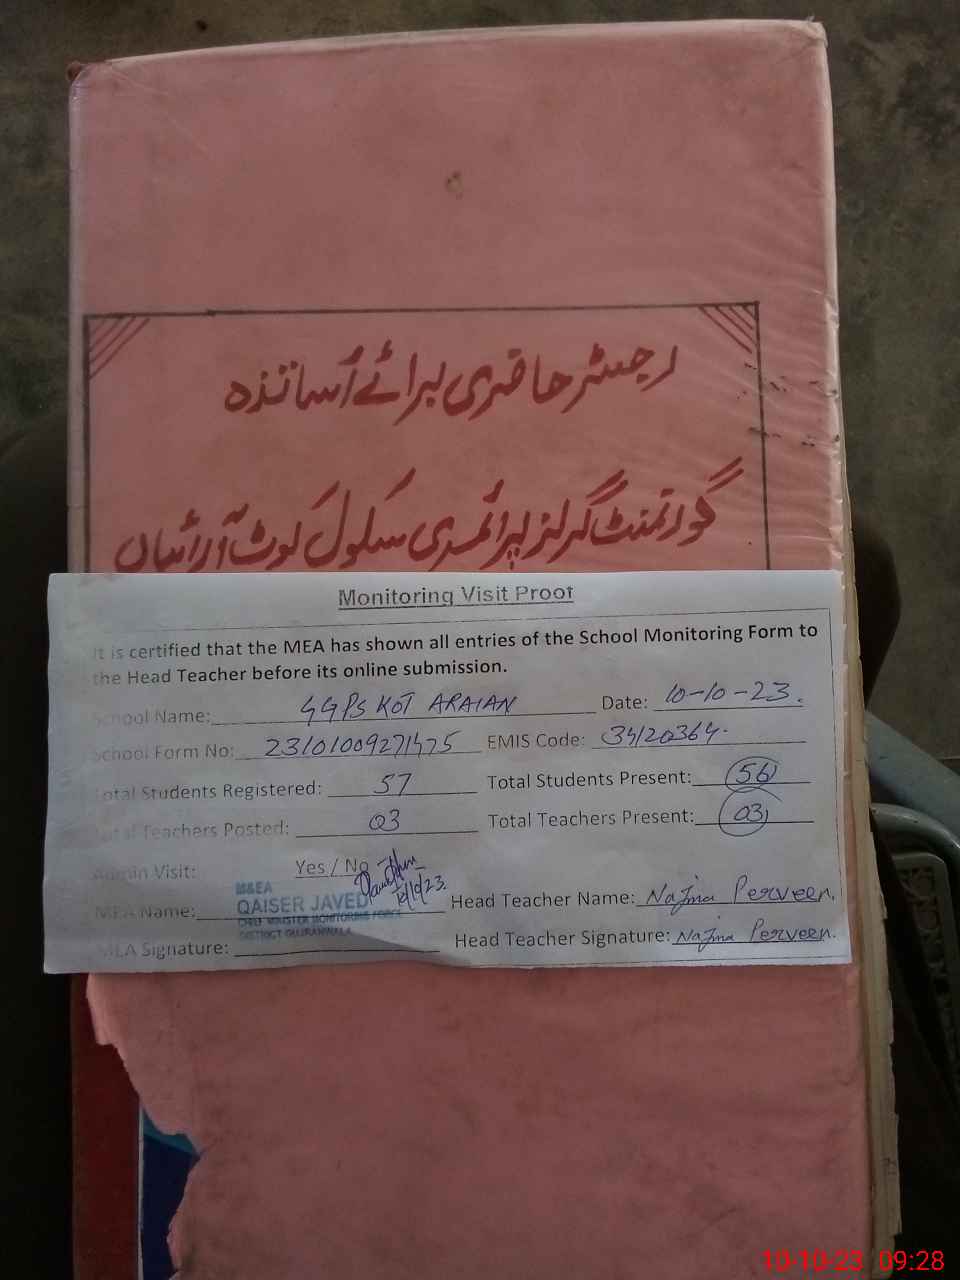 رجسٹر حاضری برائے اساتذہ
گورنمنٹ گرلز پرائمری سکول کوٹ آرائیاں
Monitoring Visit Proof
It is certified that the MEA has shown all entries of the School Monitoring Form to
the Head Teacher before its online submission.
School Name: GGPS KOT ARAIAN Date: 10-10-23.
School Form No: EMIS Code: 34120364.
Total Students Registered: 57 Total Students Present: 56
Total Teachers Posted: 03 Total Teachers Present: 03
Admin Visit: Yes / No
12/10/23.
M&EA
MEA Name: QAISER JAVED Head Teacher Name: Najma Perveen.
CHIEF MINISTER MONITORING FORCE
DISTRICT GUJRANWALA
MEA Signature: Head Teacher Signature: Najma Perveen.
10-10-23 09:28